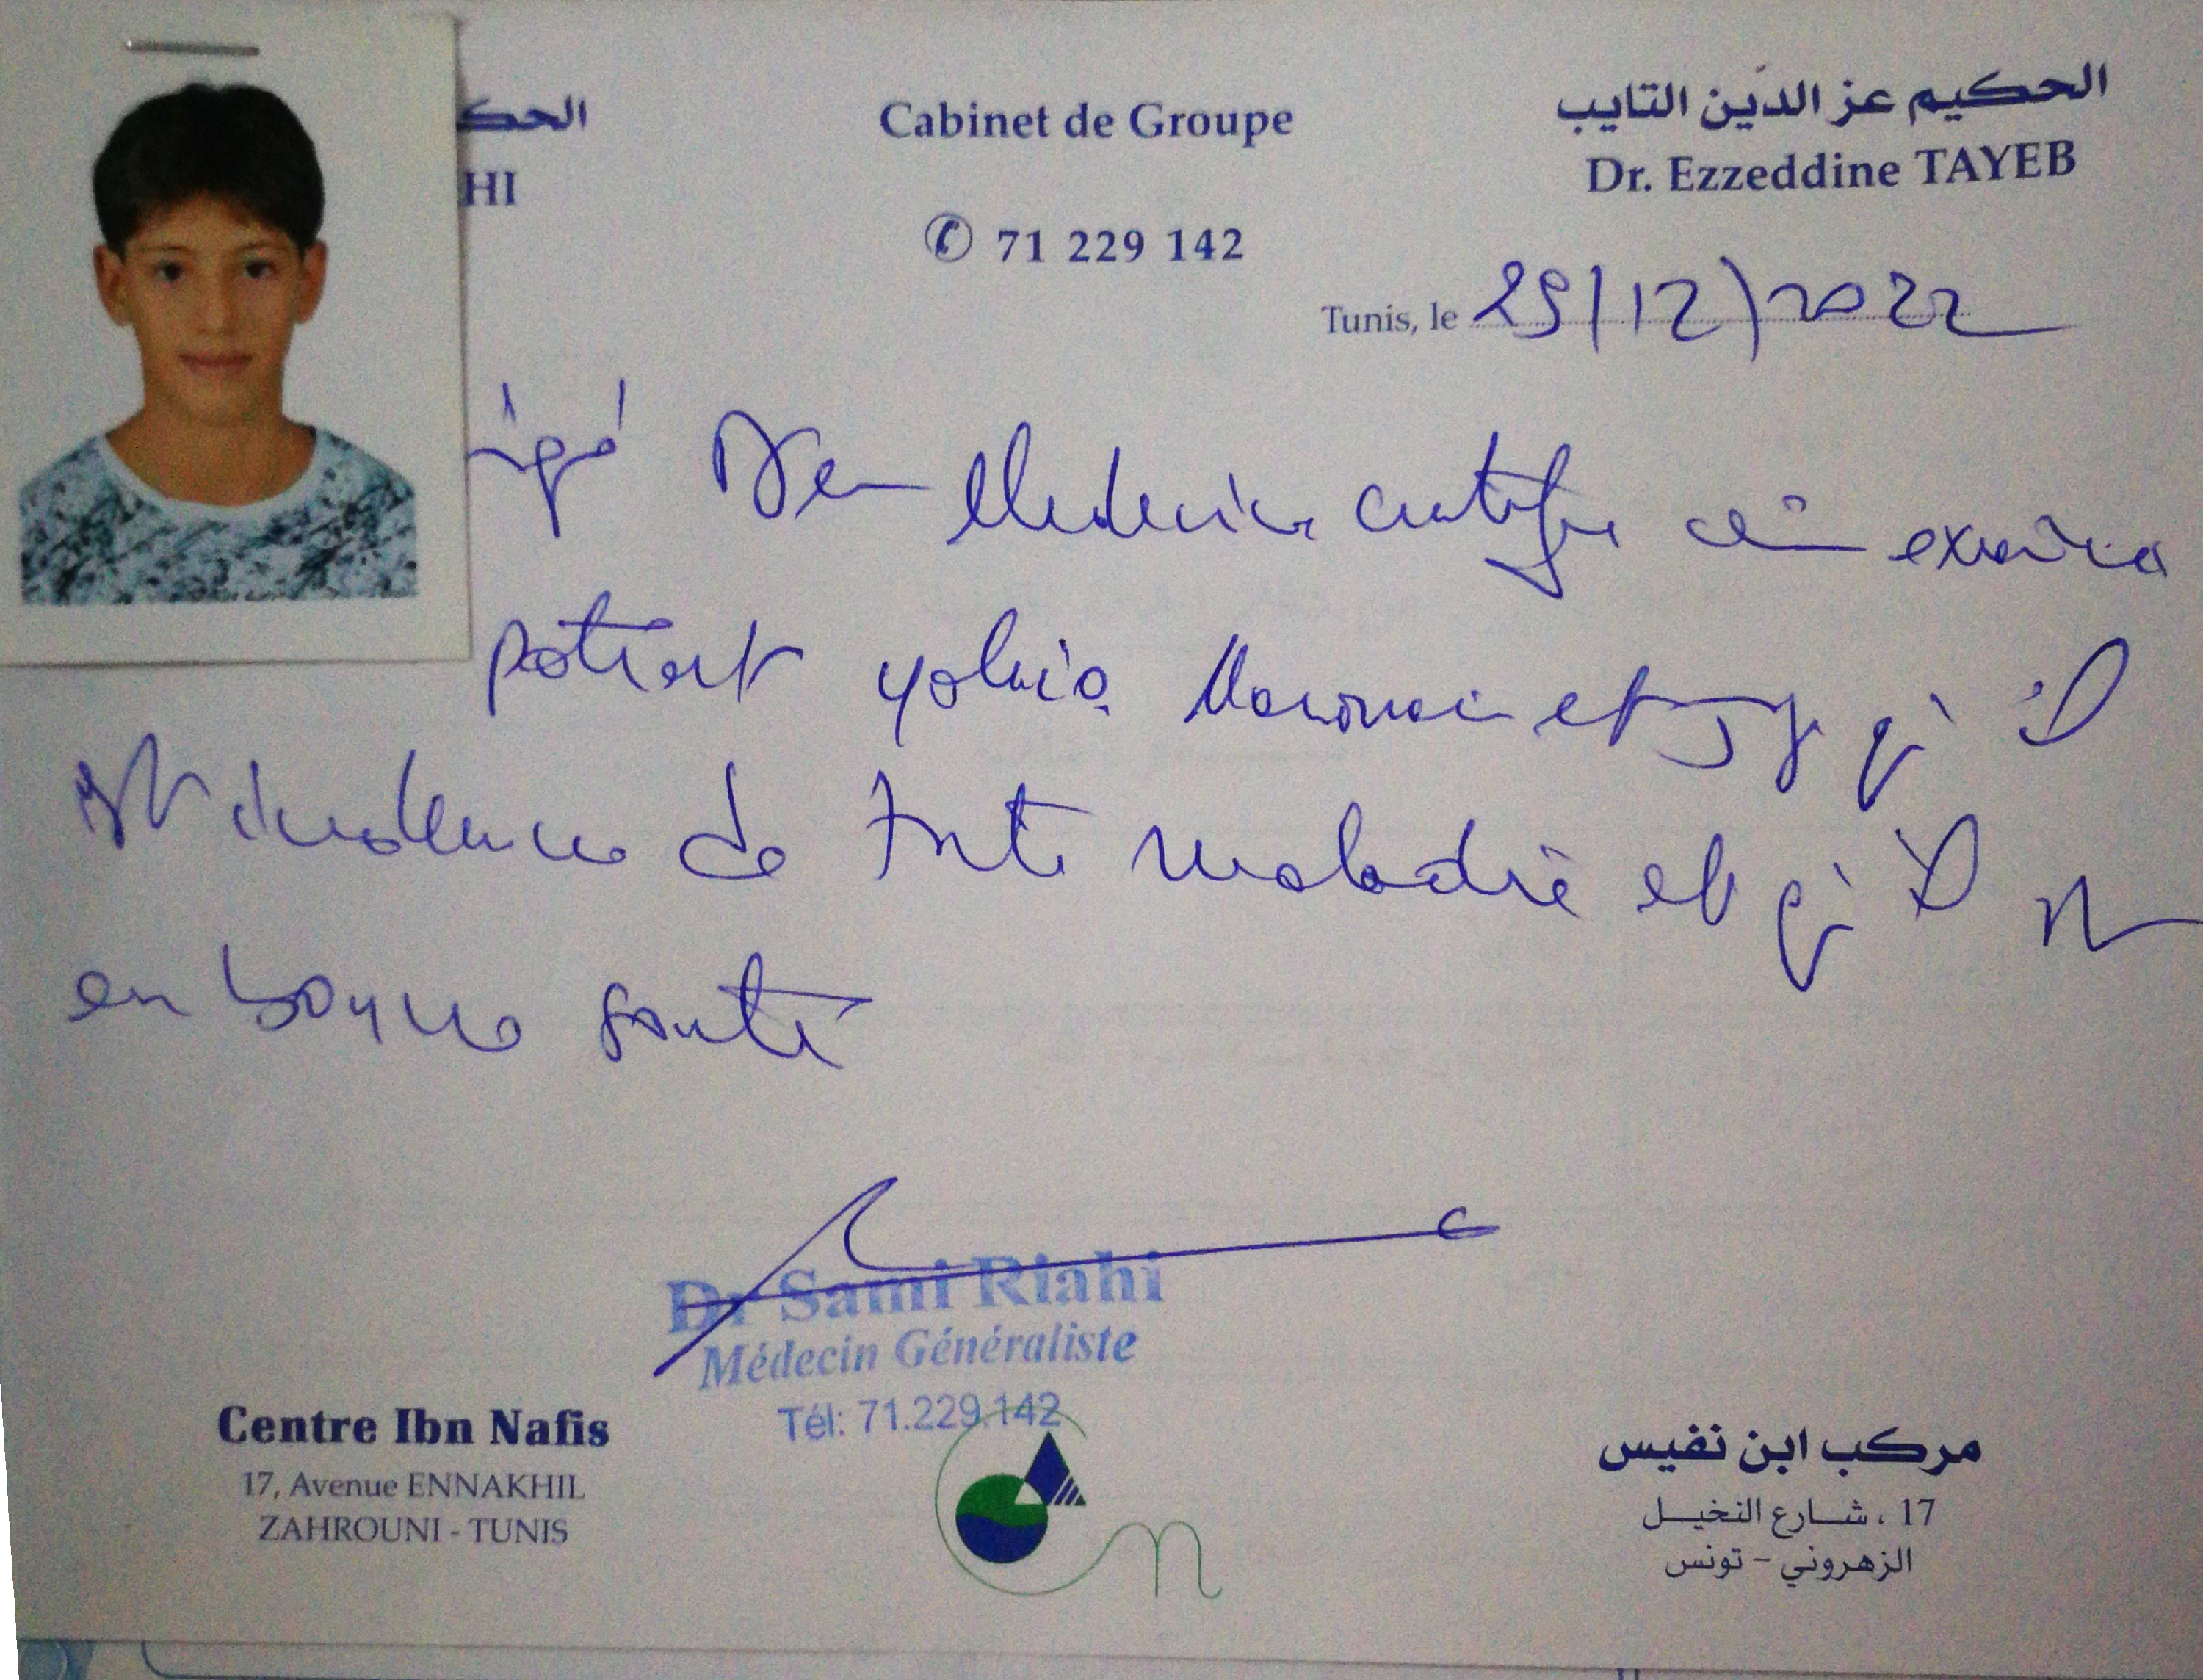 الحك
HI
Cabinet de Groupe
✆ 71 229 142
الحكيم عز الدّين التايب
Dr. Ezzeddine TAYEB
Tunis, le 29/12/2022
igné Den Medecine certifie examiné
patient yahia et qu'il
est de toute maladie et qu'il est
en bonne santé
Dr Sami Riahi
Médecin Généraliste
Tél: 71.229.142
Centre Ibn Nafis
17, Avenue ENNAKHIL
ZAHROUNI - TUNIS
مركب ابن نفيس
17 ، شارع النخيل
الزهروني - تونس